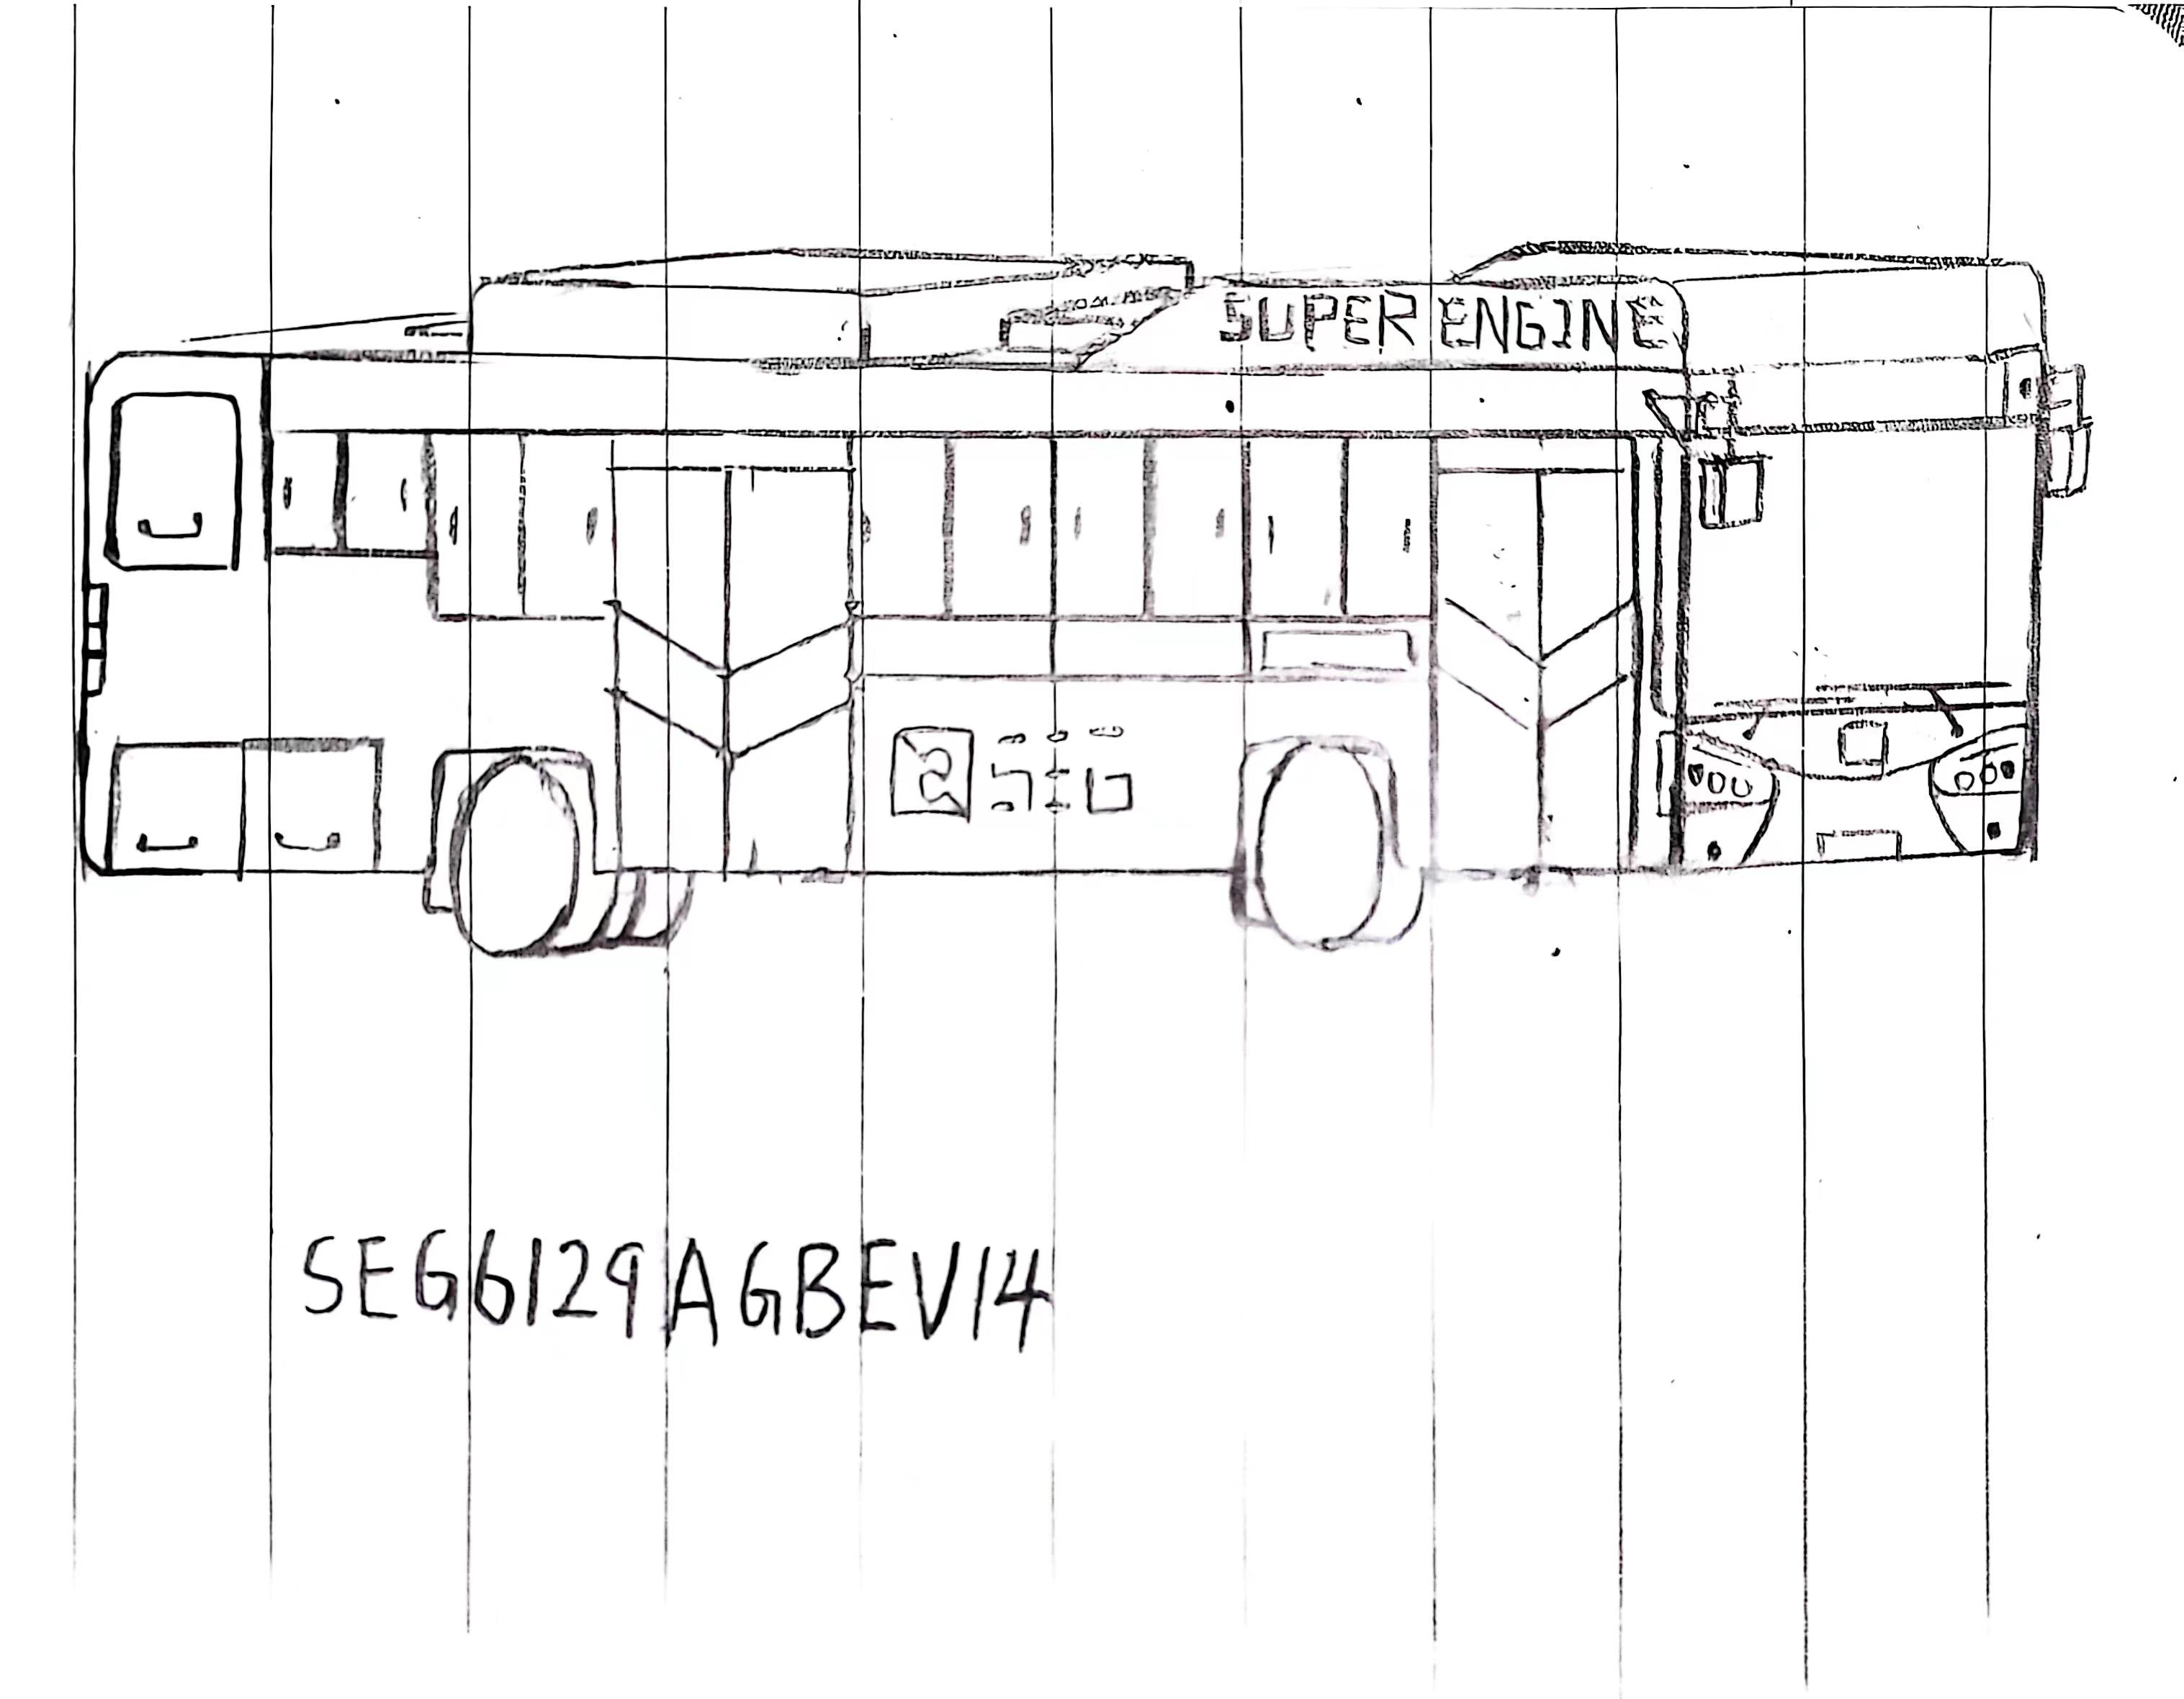 SUPER ENGINE
SEG6129AGBEV14